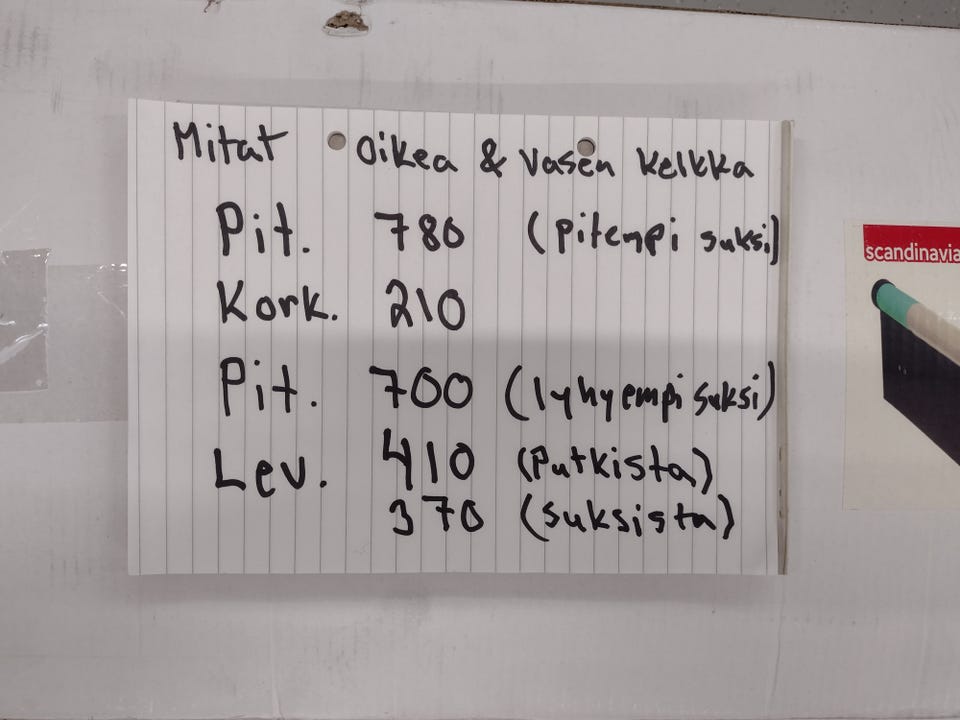 Mitat Oikea & Vasen Kelkka
Pit. 780 (pitempi suksi)
Kork. 210
Pit. 700 (lyhyempi suksi)
Lev. 410 (Putkista)
370 (suksista)
scandinavia